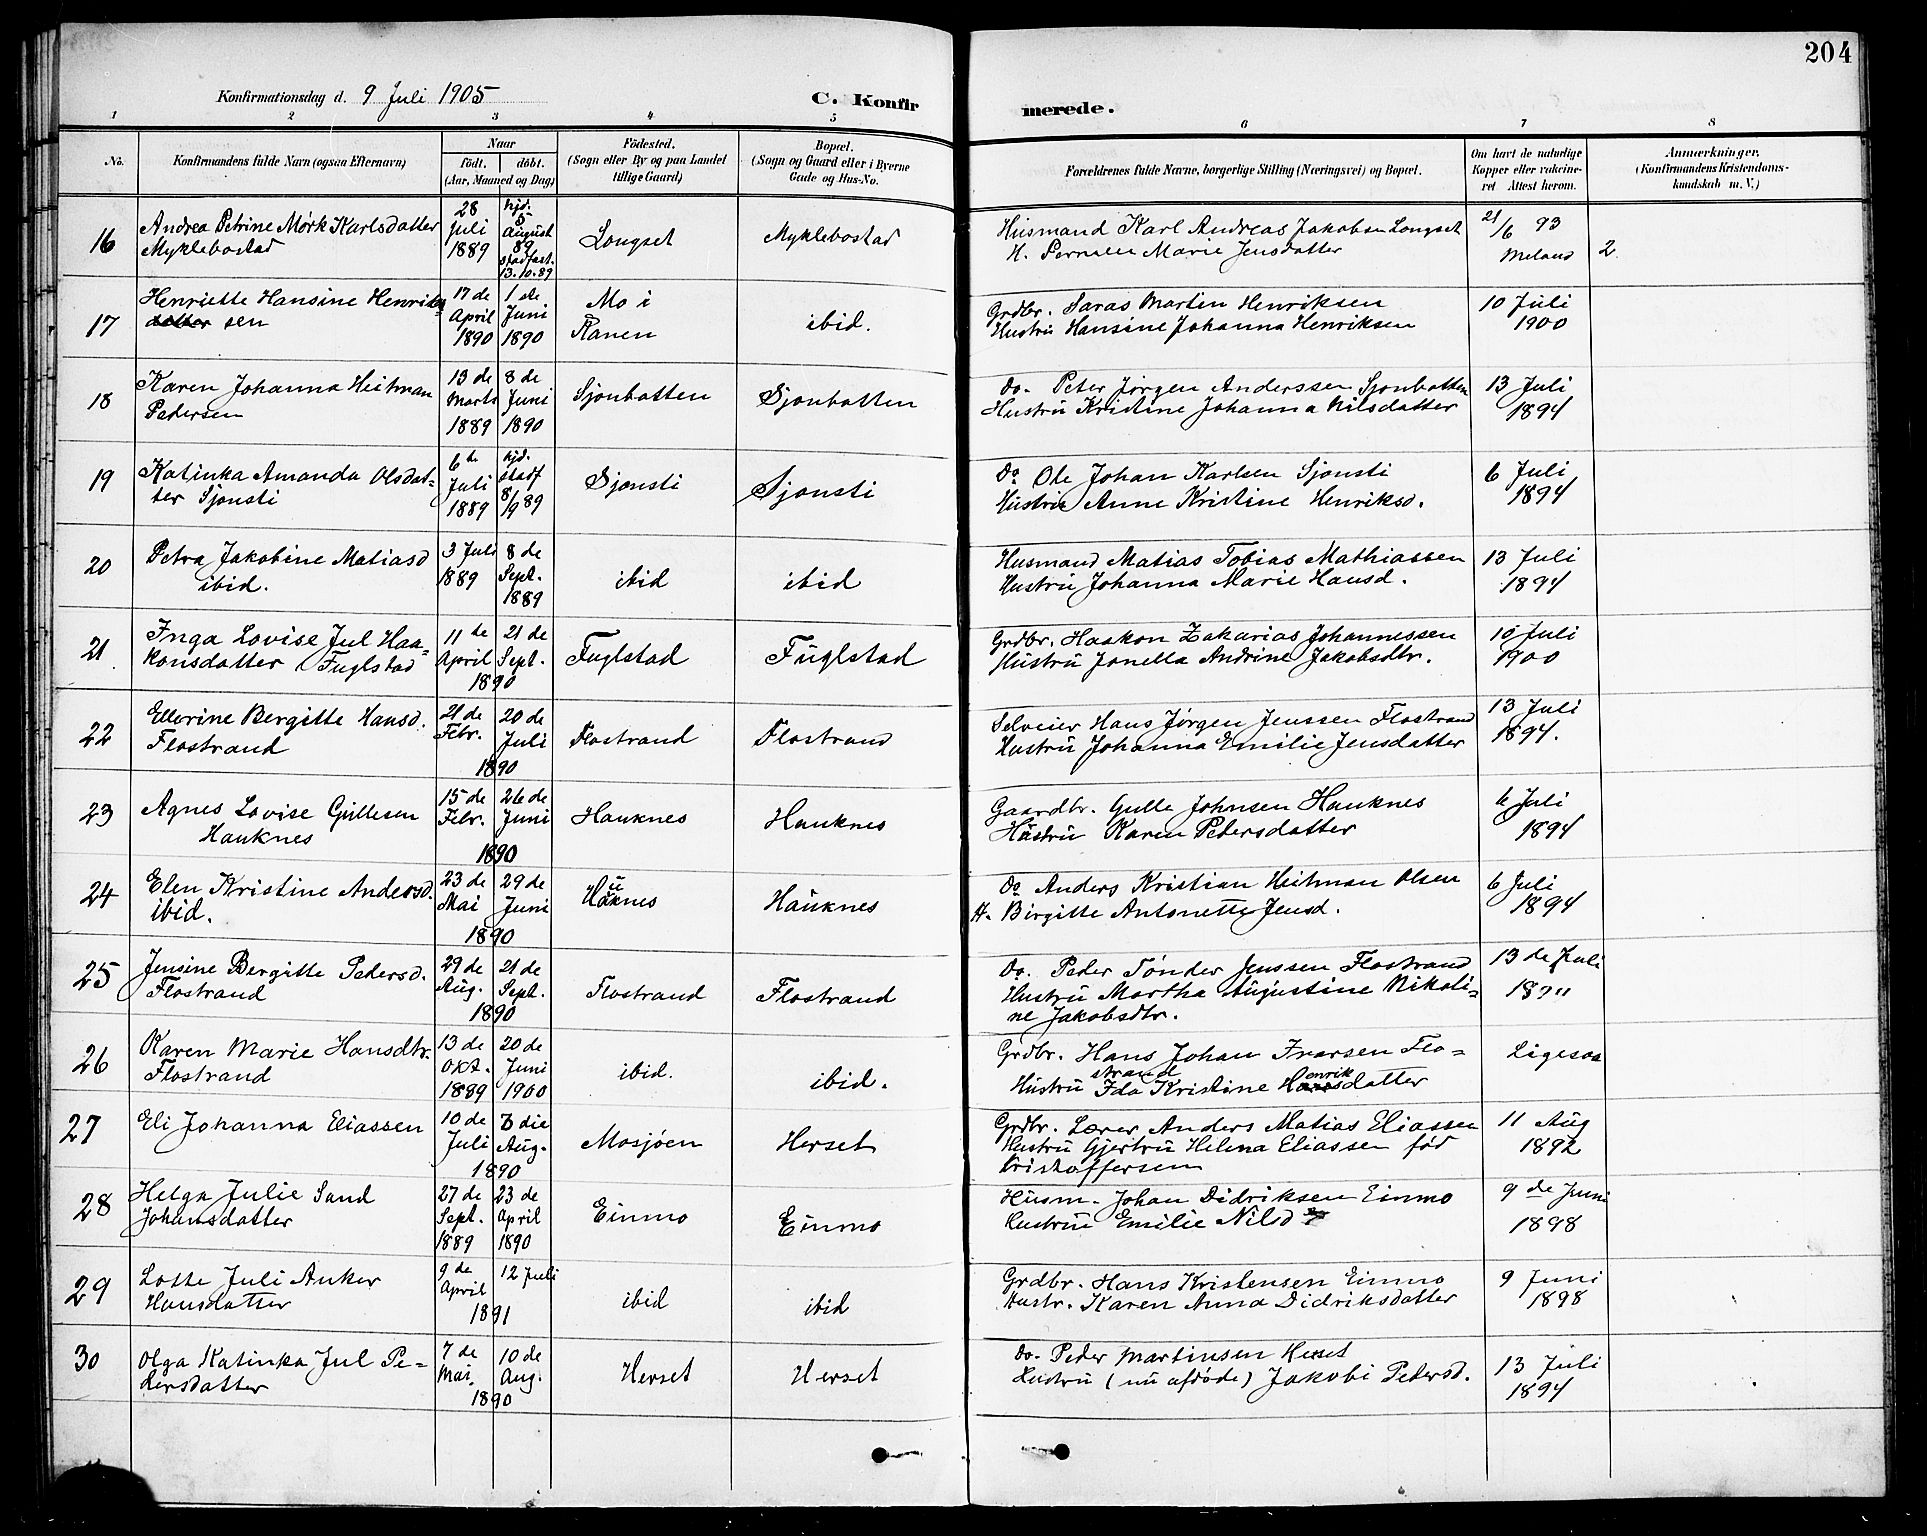 204
Konfirmationsdag d. 9 Juli 1905
C. Konfir
merede.
1 2 3 4 5 6 7 8
No.
Konfirmandens fulde Navn (ogsaa Efternavn)
Naar
födt. döbt.
(Aar, Maaned og Dag)
Födested.
(Sogn eller By og paa Landet
tillige Gaard)
Bopæl.
(Sogn og Gaard eller i Byerne
Gade og Hus-No.
Forældrenes fulde Navne, borgerlige Stilling (Næringsvei) og Bopæl.
Om havt de naturlige
Kopper eller vakcine-
ret Attest herom.
Anmærkninger,
(Konfirmandens Kristendoms-
kundskab m. V.)
16 Andrea Petrine Mørk Karlsdatter
Myklebostad
28
Juli
1889
hjd.
5
August
89
stadfæst.
13.10.89
Longset
Myklebostad
Husmand Karl Andreas Jakobsen Longset
H. Pernille Marie Jensdatter
21/6 93
Meland
2
17 Henriette Hansine Henrik
sen
17 de
April
1890
1 ste
Juni
1890
Mo i
Ranen
ibid.
Grdbr. Saras Martin Henriksen
Hustru Hansine Johanna Henriksen
10 Juli
1900
18 Karen Johanna Heitman
Pedersen
13 de
Marts
1889
8 de
Juni
1890
Sjonbotten
Sjonbotten
Do. Peter Jørgen Anderssen Sjonbotten
Hustru Kristine Johanna Nilsdatter
13 Juli
1894
19 Katinka Amanda Olsdat=
ter Sjonsti
6 te
Juli
1889
hjd.
stadf
8/9 89
Sjonsti
Sjonsti
Do Ole Johan Karlsen Sjonsti
Hustru Anne Kristine Henriksd.
6 Juli
1894
20 Petra Jakobine Matiasd
ibid.
3 Juli
1889
8 de
Sept.
1889
ibid
ibid
Husmand Matias Tobias Mathiassen
Hustru Johanna Marie Hansd.
13 Juli
1894
21 Inga Lovise Jul Haa=
konsdatter Fuglstad
11 te
April
21 de
Sept.
1890
Fuglstad
Fuglstad
Grdbr. Haakon Zakarias Johannessen
Hustru Jonella Andrine Jakobsdtr.
10 Juli
1900
22 Ellerine Bergitte Hansd.
Flostrand
21 de
Febr.
20 de
Juli
1890
Flostrand
Flostrand
Selveier Hans Jørgen Jenssen Flostrand
Hustru Johanna Emilie Jensdatter
13 Juli
1894.
23 Agnes Lovise Gullesen
Hauknes
15 de
Febr.
26 de
Juni
1890
Hauknes
Hauknes
Gaardbr. Gulle Johnsen Hauknes
Hustru Karen Petersdatter
6 Juli
1894
24 Elen Kristine Andersd.
ibid.
23 de
Mai
29 de
Juni
1890
Hauknes
Hauknes
Do Anders Kristian Heitman Olsen
H. Birgitte Antonette Jensd.
6 Juli
1894
25 Jensine Bergitte Pedersd.
Flostrand
29 de
Aug.
21 de
Sept.
1890
Flostrand
Flostrand
Do. Peder Tønder Jenssen Flostrand
Hustru Martha Augustine Nikoli=
ne Jakobsdtr.
13 de Juli
26 Karen Marie Hansdtr.
Flostrand
13 de
Okt.
1889
20 de
Juni
1900
ibid.
ibid.
Grdbr. Hans Johan Ivarsen Flo=
strand
Hustru Ida Kristine Henriksdatter
Ligesaa
27 Eli Johanna Eliassen
10 de
Juli
3 die
Aug.
1890
Mosjøen
Herset
Grdbr. Lærer Anders Matias Eliassen
Hustru Gjertru Helena Eliassen fød
Kristoffersen
11 Aug
1892
28 Helga Julie Sand
Johansdatter
27 de
Sept.
1889
23 de
April
1890
Einmo
Einmo
Husm. Johan Didriksen Einmo
Hustru Emilie Nilsd
9 de Juni
1898
29 Lotte Juli Anker
Hansdatter
9 de
April
12 Juli
1891
ibid
ibid
Grdbr. Hans Kristensen Einmo
Hustr. Karen Anna Didriksdatter
9 Juni
1898
30 Olga Katinka Jul Pe=
dersdatter
7 de
Mai
10 de
Aug.
1890
Herset
Herset
Do. Peder Martinsen Herset
Hustru (nu afdøde) Jakobi Pedersd.
13 Juli
1894